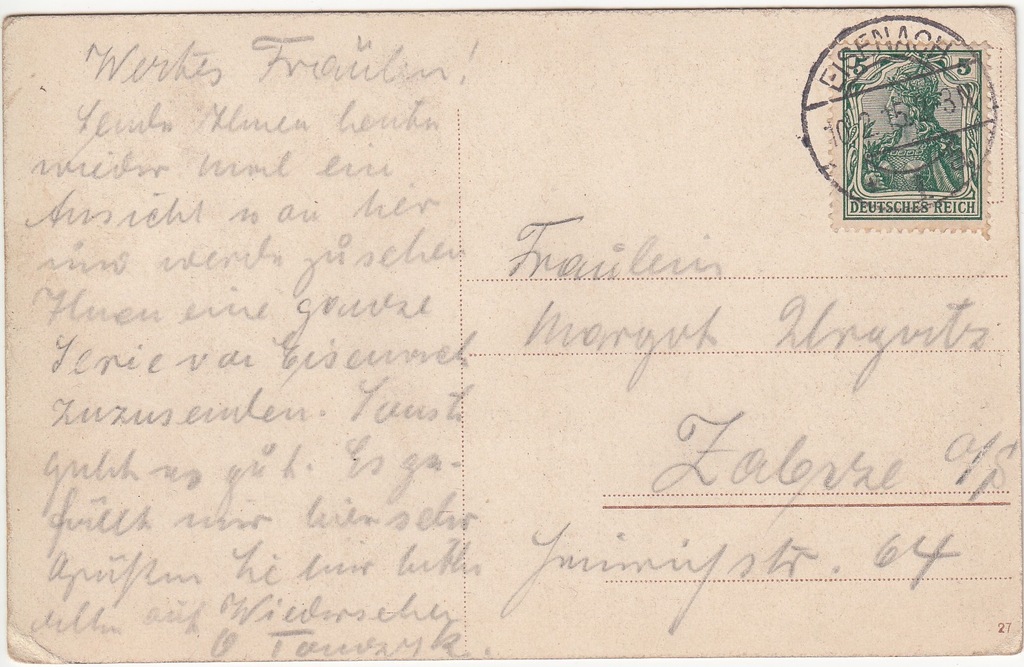 Wertes Fräulein!
Sende Ihnen heute
wieder mal ein
Ansicht von hier
und werde zusehen
Ihnen eine ganze
Serie von Eisenach
zuzusenden. Sonst
geht es gut. Es ge-
fällt mir hier sehr
Grüßen Sie mir bitte
alle auf Wiedersehen
EISENACH
5 5
DEUTSCHES REICH
Fräulein
Margot
Zabrze o/S
Heinrichstr. 64
27